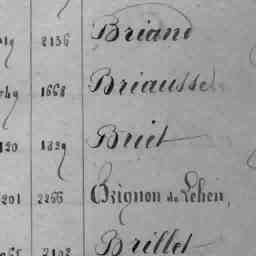 2136 Briand
1668 Briausse
120 1829 Briet
201 2266 Brignon de Lehen,
2102 Brillet